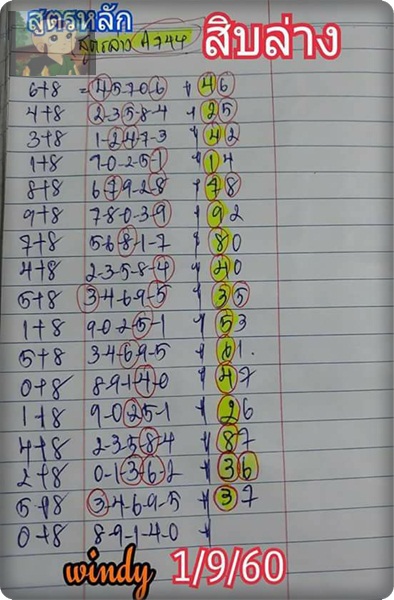 สูตรหลัก
สูตรลาว A744 สิบล่าง
6+8 = 4-5-7-0-6 √ 46
4+8 2-3-5-8-4 √ 25
3+8 1-2-4-7-3 √ 42
1+8 9-0-2-5-1 √ 14
8+8 6-7-9-2-8 √ 78
9+8 7-8-0-3-9 √ 92
7+8 5-6-8-1-7 √ 80
4+8 2-3-5-8-4 √ 40
5+8 3-4-6-9-5 √ 35
1+8 9-0-2-5-1 √ 53
5+8 3-4-6-9-5 √ 61.
0+8 8-9-1-4-0 √ 47
1+8 9-0-2-5-1 √ 26
4+8 2-3-5-8-4 √ 87
2+8 0-1-3-6-2 √ 36
5+8 3-4-6-9-5 √ 37
0+8 8-9-1-4-0 √
windy 1/9/60